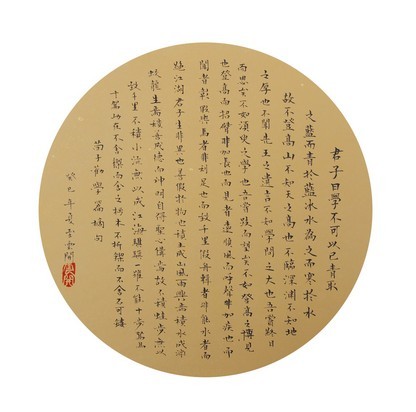 君子曰學不可以已青取
之藍而青於藍冰水為之而寒於水
故不登高山不知天之高也不臨深淵不知地
之厚也不聞先王之遺言不知學問之大也吾嘗終日
而思矣不如須臾之學也吾嘗跂而望矣不如登高之博見
也登高而招臂非加長也而見者遠順風而呼聲非加疾也而
聞者彰假輿馬者非利足也而致千里假舟楫者非能水者而
絕江河君子生非異也善假於物也積土成山風雨興焉積水成淵
蛟龍生焉積善成德而神明自得聖心備焉故不積蹞步無以
致千里不積小流無以成江海騏驥一躍不能十步駑馬
十駕功在不舍鍥而舍之朽木不折鍥而不舍金石可鏤
荀子勸學篇摘句
癸巳年夏